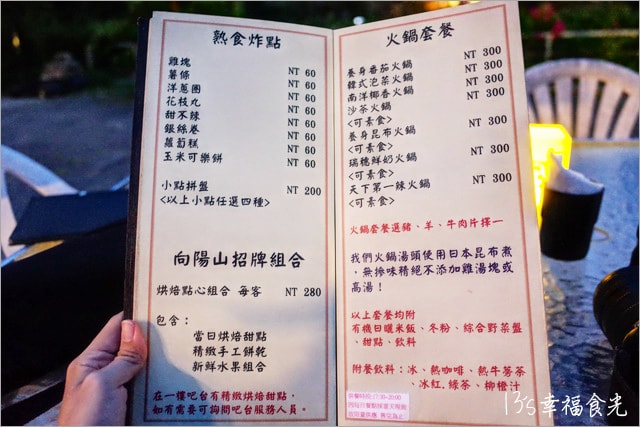 熱食炸點
雞塊 NT 60
薯條 NT 60
洋蔥圈 NT 60
花枝丸 NT 60
甜不辣 NT 60
銀絲卷 NT 60
蘿蔔糕 NT 60
玉米可樂餅 NT 60
小點拼盤 NT 200
<以上小點任選四種>
向陽山招牌組合
烘焙點心組合 每客 NT 280
包含：
當日烘焙甜點
精緻手工餅乾
新鮮水果組合
在一樓吧台有精緻烘焙甜點，
如有需要可詢問吧台服務人員。
火鍋套餐
養身番茄火鍋 NT 300
韓式泡菜火鍋 NT 300
南洋椰香火鍋 NT 300
沙茶火鍋 NT 300
<可素食>
養身昆布火鍋 NT 300
<可素食>
瑞穗鮮奶火鍋 NT 300
<可素食>
天下第一辣火鍋 NT 300
<可素食>
火鍋套餐選豬、羊、牛肉片擇一
我們火鍋湯頭使用日本昆布煮
，無摻味精絕不添加雞湯塊或
高湯！
以上套餐均附
有機日曬米飯、冬粉、綜合野菜盤
、甜點、飲料
附餐飲料：冰、熱咖啡、熱牛蒡茶
、冰紅.綠茶、柳橙汁
13's幸福食光